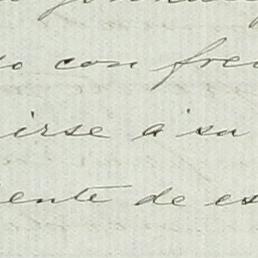 o con fre
irse á su
ente de es